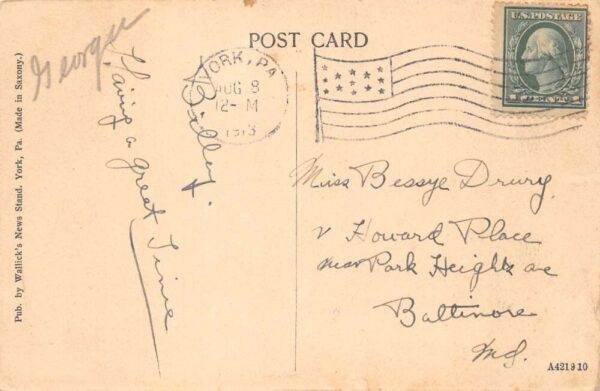 POST CARD
U.S.POSTAGE
1 CENT 1
YORK, PA.
AUG 8
12-M
1913
Georgie
Having a great Time
Billy.
Miss Bessye Drury
Howard Place
near Park Heights ave
Baltimore
Md.
Pub. by Wallick's News Stand, York, Pa. (Made in Saxony.)
A421910